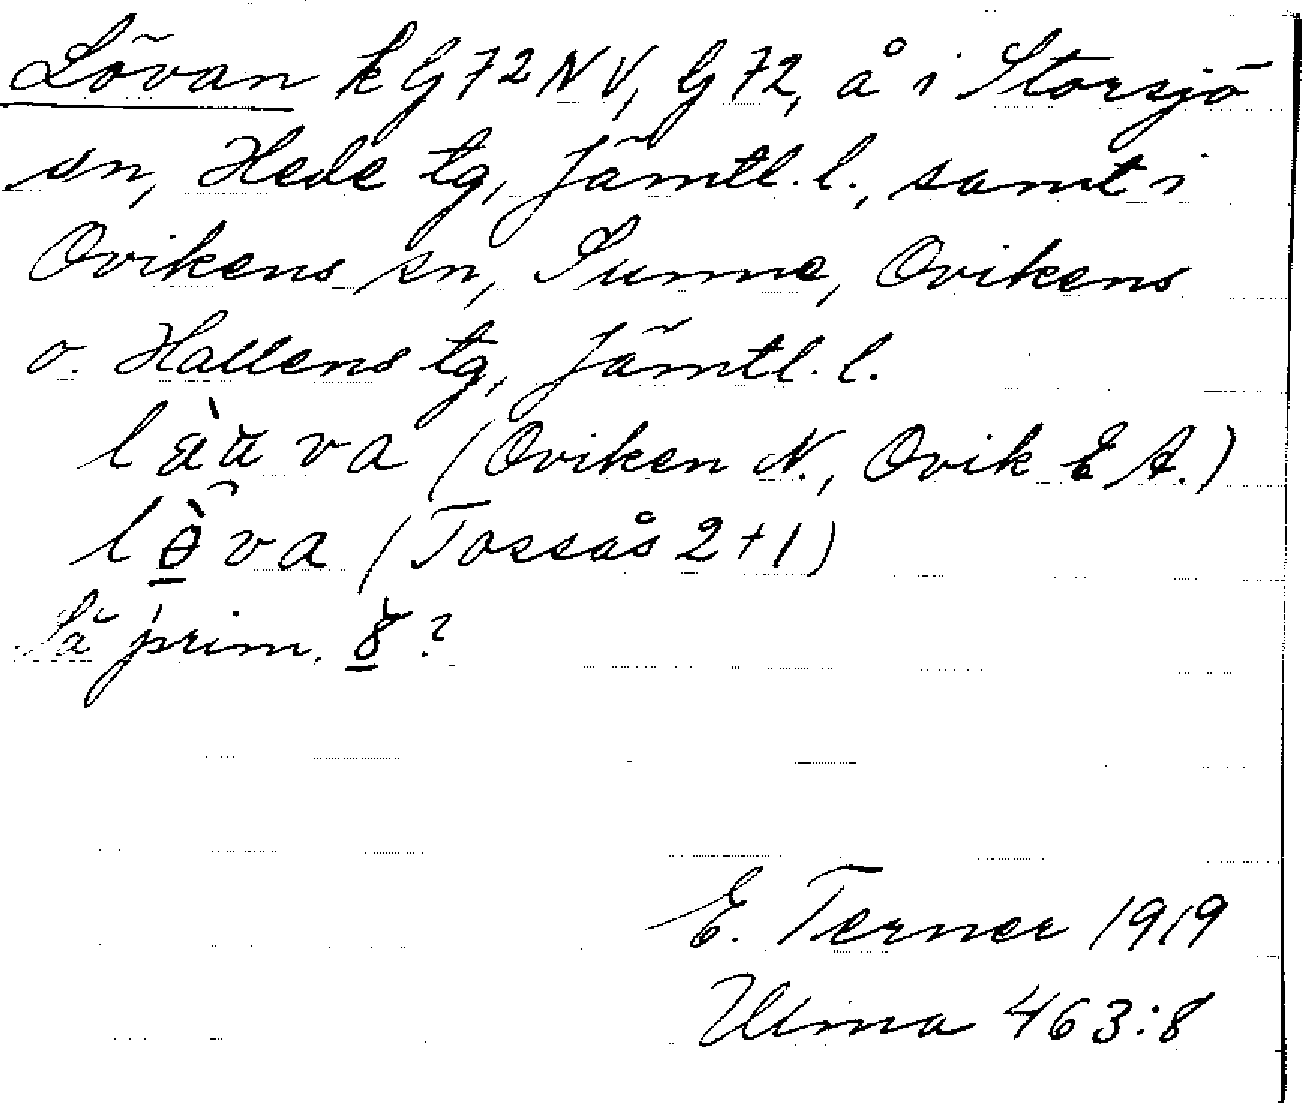 Lövan k G 72 NV, G 72, å i Storsjö
sn, Hede tg, Jämtl. l., samt i
Ovikens sn, Sunne, Ovikens
o. Hallens tg, Jämtl. l.
va (Oviken N., Ovik E A.)
va (Tossås 2+1)
prim. ?
E. Terner 1919
Ulma 463:8